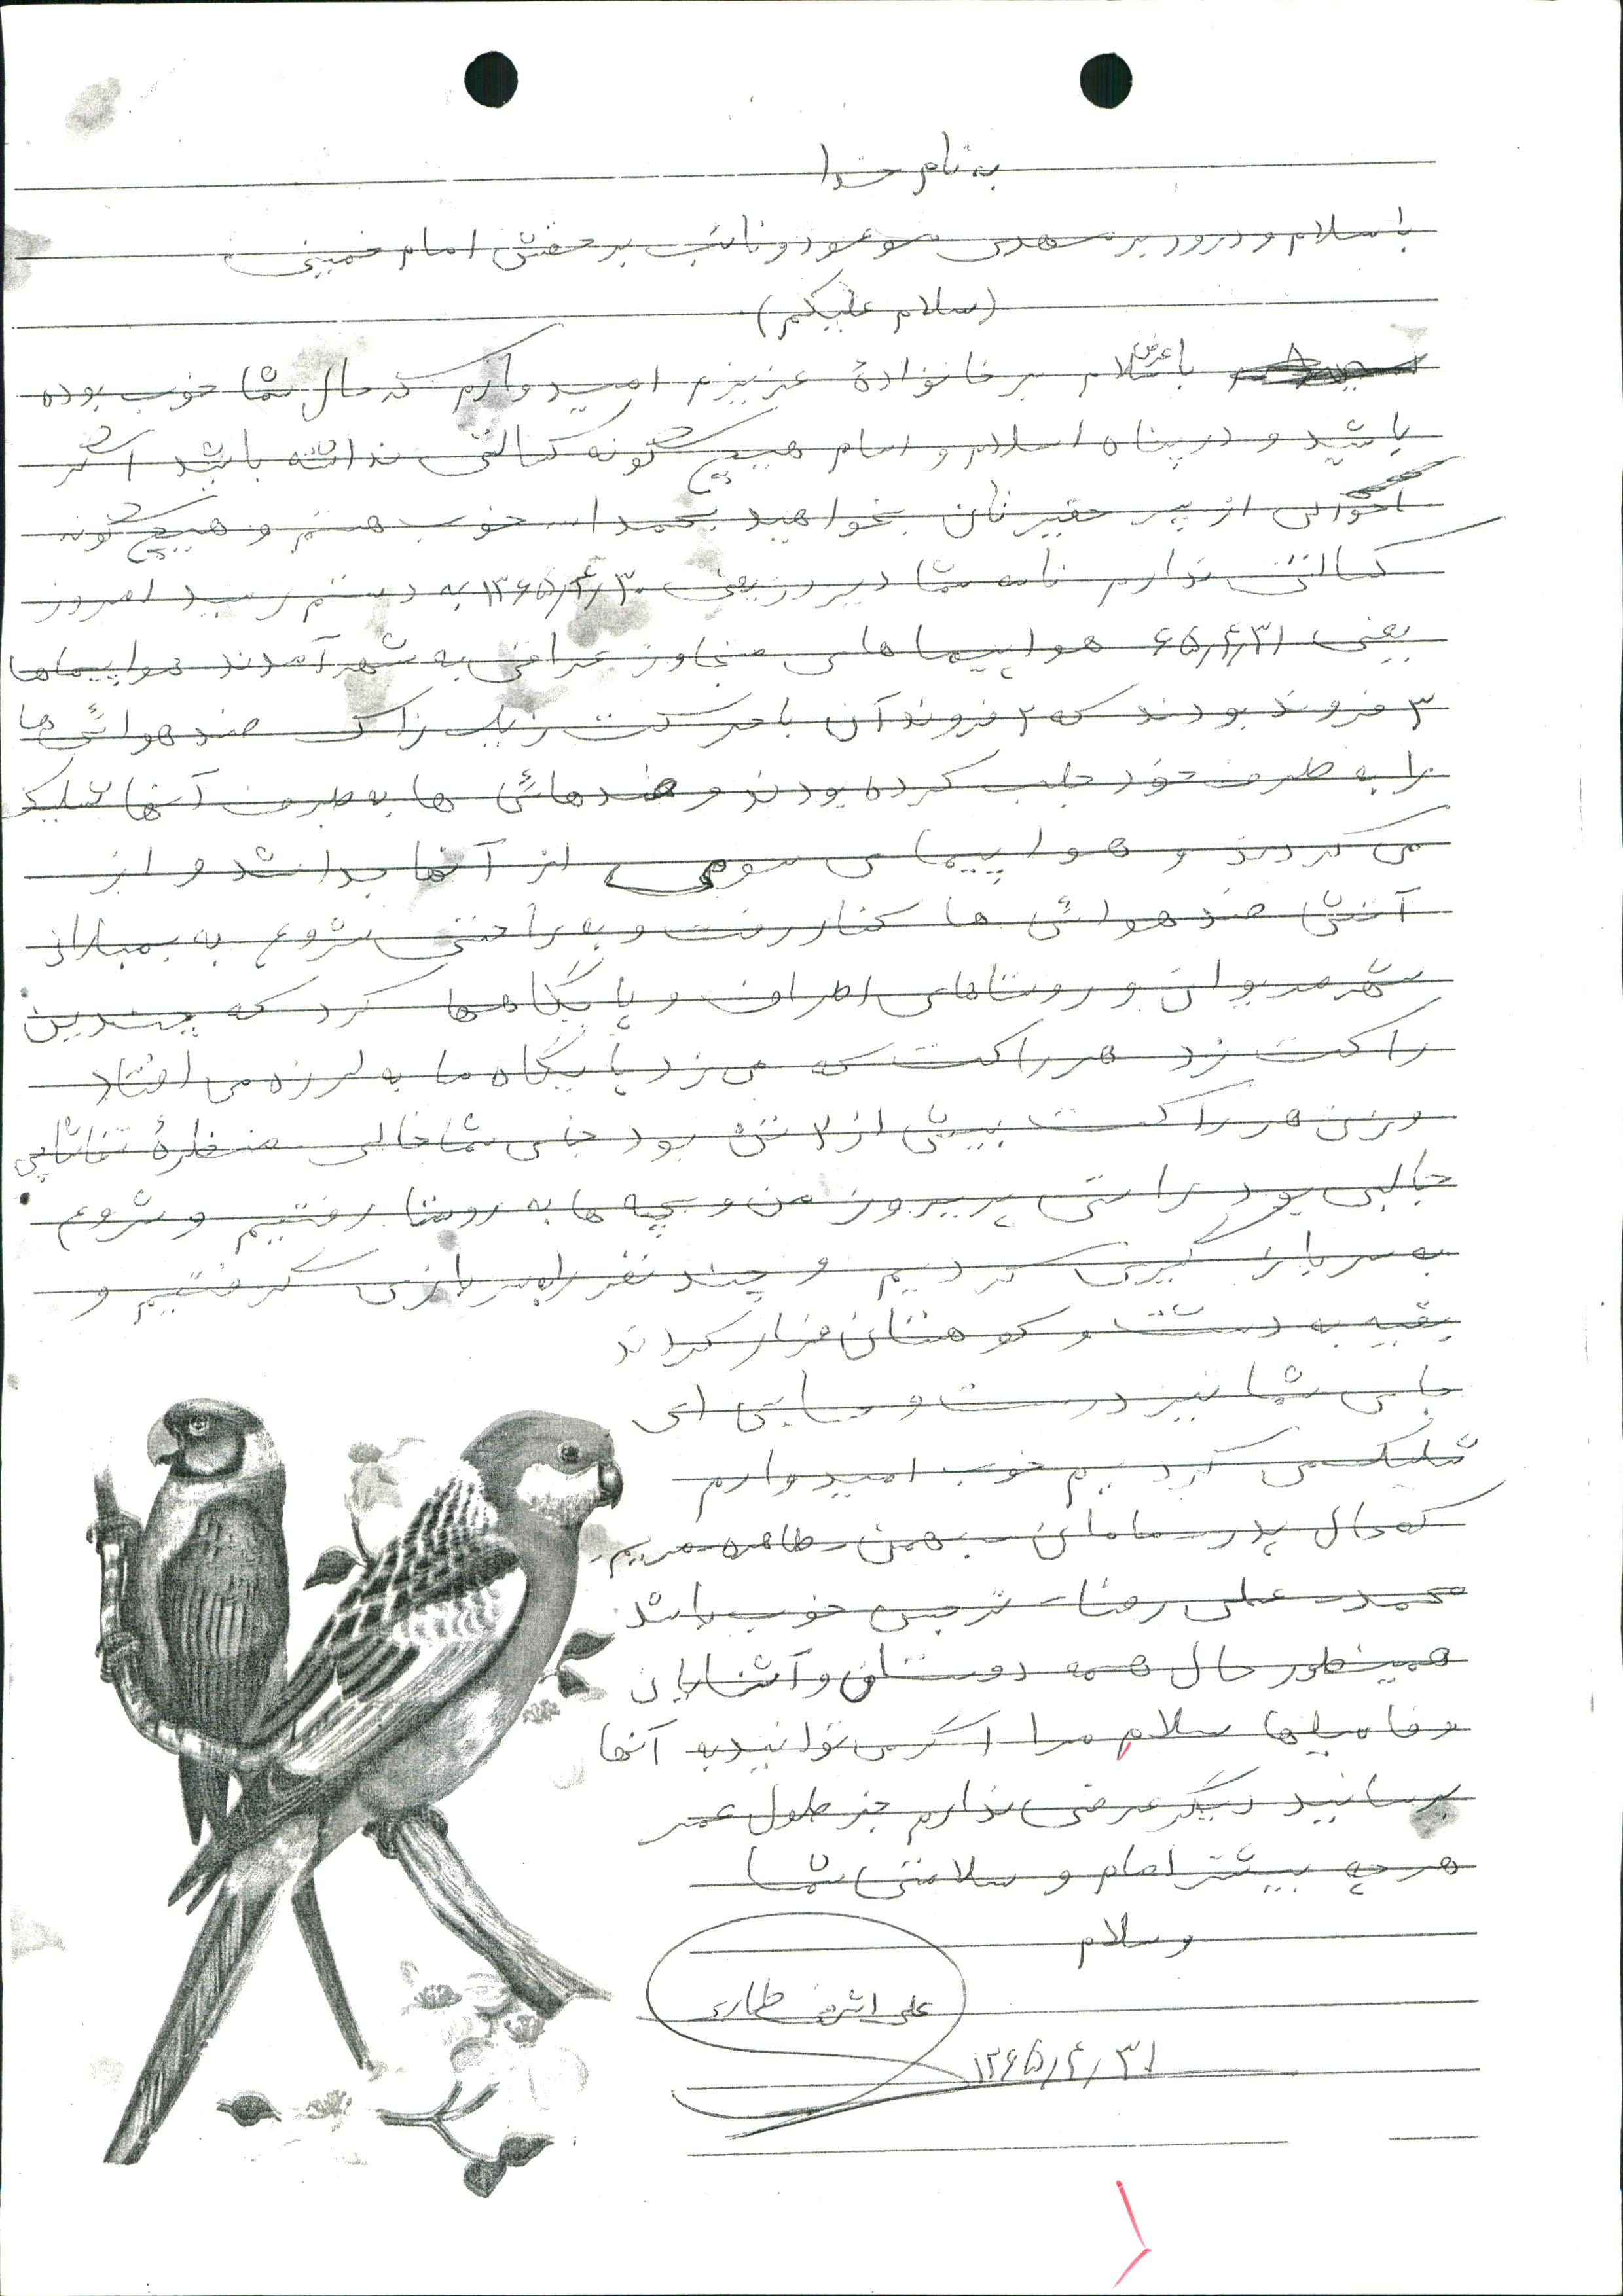 به نام خدا
با سلام و درود بر مهدی موعود و نائب بر حقش امام خمینی
(سلام علیکم)
با عرض سلام بر خانوادهٔ عزیزم امیدوارم که حال شما خوب بوده
باشید و در پناه اسلام و امام هیچ گونه کسالتی نداشته باشید اگر
احوالی از پسر حقیرتان بخواهید بحمدا... خوب هستم و هیچ گونه
کسالتی ندارم نامه شما دیروز یعنی ۱۳۶۵/۴/۳۰ به دستم رسید امروز
یعنی ۶۵/۴/۳۱ هواپیماهای متجاوز عراقی به شهر آمدند هواپیماها
۳ فروند بودند که ۲ فروند آن با حرکت زیک زاک ضد هوائی ها
را به طرف خود جلب کرده بودند و ضدهائی ها به طرف آنها شلیک
می کردند و هواپیمای سومی از آنها جدا شد و از
آتش ضد هوائی ها کنار رفت و به راحتی شروع به بمباران
شهر مریوان و روستاهای اطراف و پایگاهها کرد که چندین
راکت زد هر راکت که می زد پایگاه ما به لرزه می افتاد
وزن هر راکت بیش از ۲ تن بود جای شما خالی منظرهٔ تماشایی
جالبی بود راستی پریروز من و بچه ها به روستا رفتیم و شروع
به سرباز گیری کردیم و چند نفر را به سربازی گرفتیم و
بقیه به دشت و کوهستان فرار کردند
جای شما تیر درست و حسابی ای
شلیک می کردیم خوب امیدوارم
که حال پدر ـ مامان ـ بهمن ـ طاهره ـ مریم ـ
محمد ـ علی رضا ـ نرجس خوب باشد
همینطور حال همه دوستان و آشنایان
و فامیلها سلام مرا اگر می توانید به آنها
برسانید دیگر عرضی ندارم جز طول عمر
هر چه بیشتر امام و سلامتی شما
وسلام
علی اشرف
۱۳۶۵/۴/۳۱